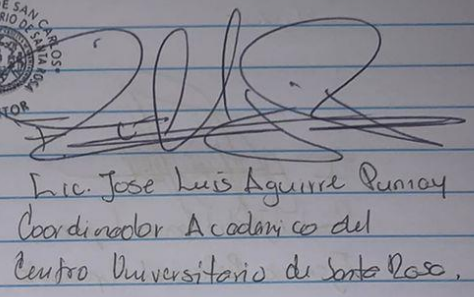 DE SAN CARLOS
RIO DE SANTA ROSA
TOR
Lic. Jose Luis Aguirre Pumay
Coordinador Academico del
Centro Universitario de Santa Rosa.